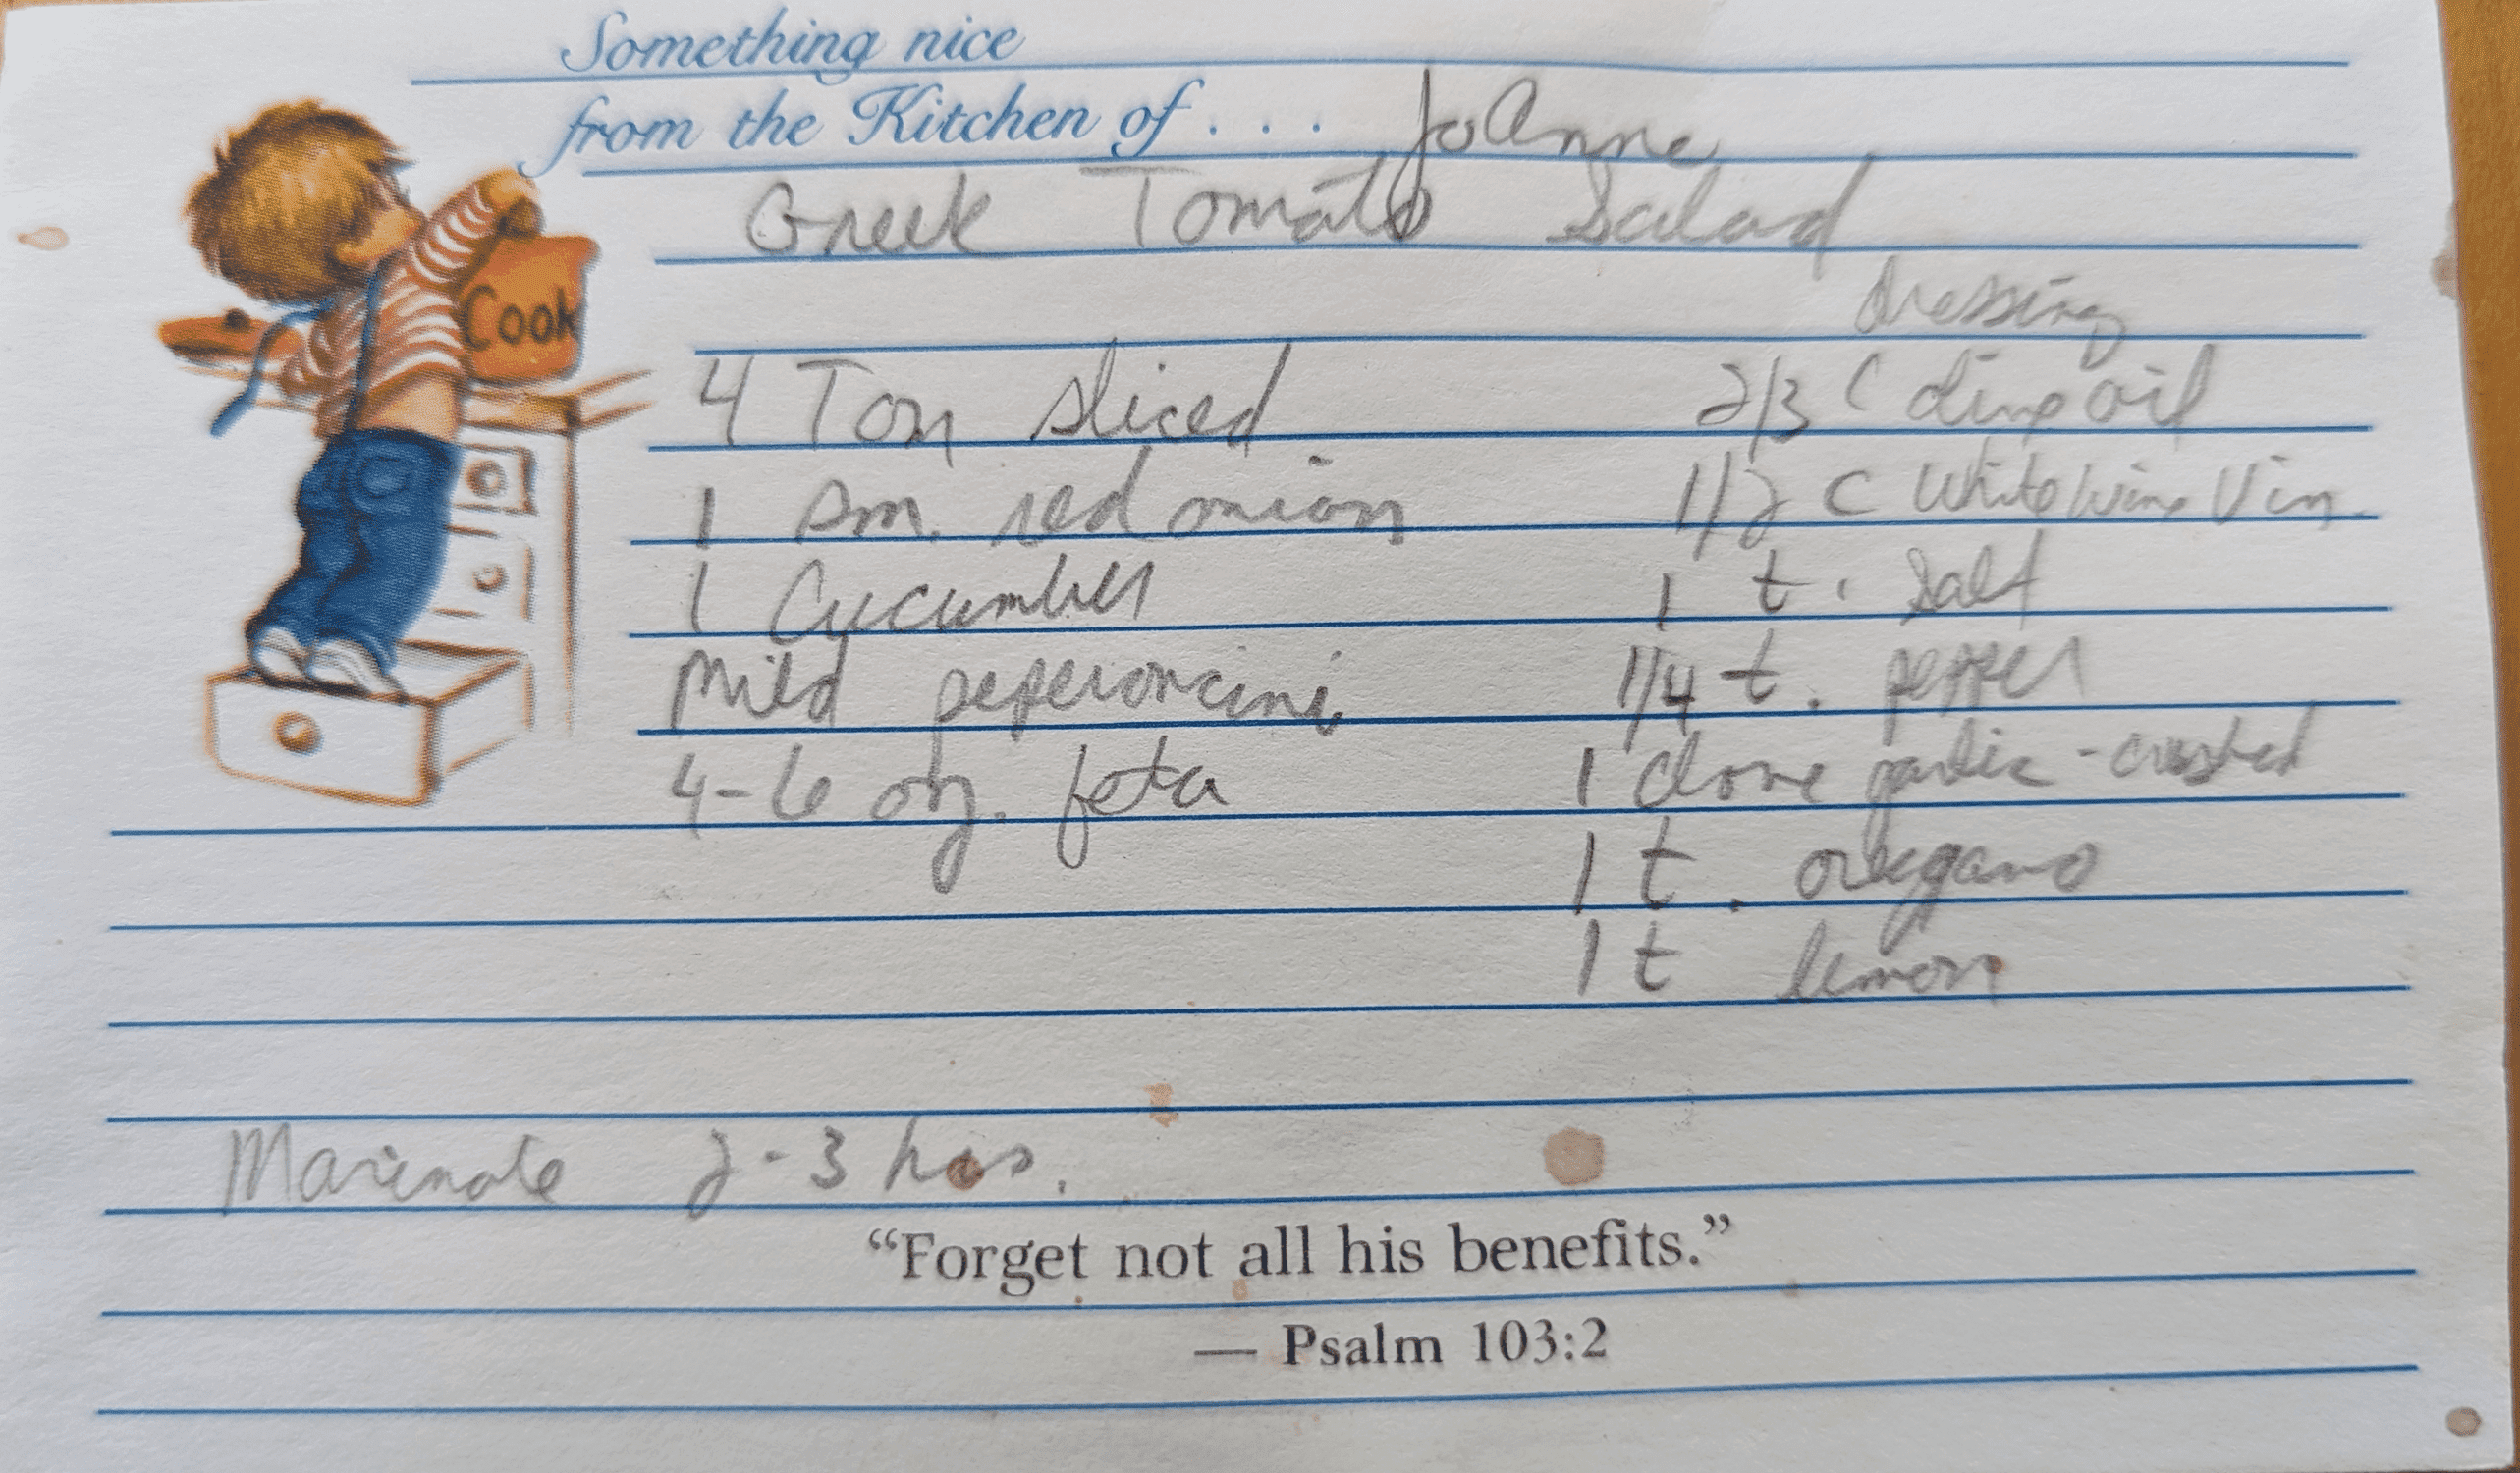 Something nice
from the Kitchen of . . . JoAnne
Greek Tomato Salad
Cook
4 Tom sliced
1 sm. red onion
1 Cucumber
Mild peperoncini
4-6 oz. feta
dressing
2/3 C olive oil
1/2 C White Wine Vin.
1 t. salt
1/4 t. pepper
1 clove garlic - crushed
1 t. oregano
1 t lemon
Marinate 2-3 hrs.
“Forget not all his benefits.”
— Psalm 103:2